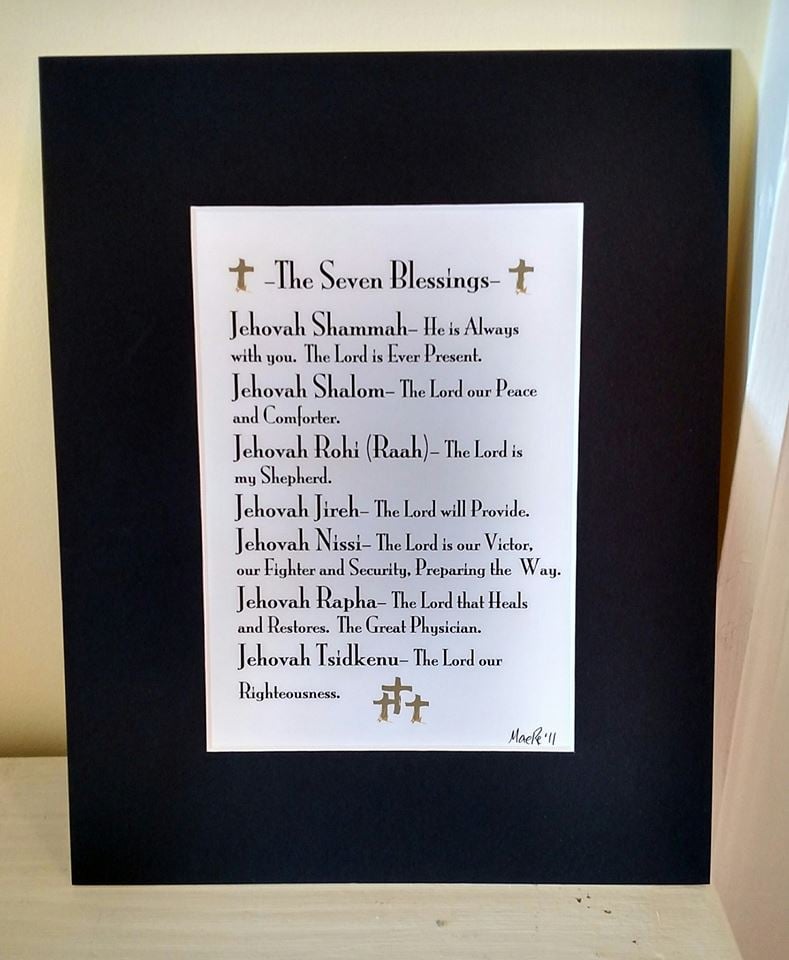 -The Seven Blessings-
Jehovah Shammah- He is Always
with you. The Lord is Ever Present.
Jehovah Shalom- The Lord our Peace
and Comforter.
Jehovah Rohi (Raah)- The Lord is
my Shepherd.
Jehovah Jireh- The Lord will Provide.
Jehovah Nissi- The Lord is our Victor,
our Fighter and Security, Preparing the Way.
Jehovah Rapha- The Lord that Heals
and Restores. The Great Physician.
Jehovah Tsidkenu- The Lord our
Righteousness.
'11